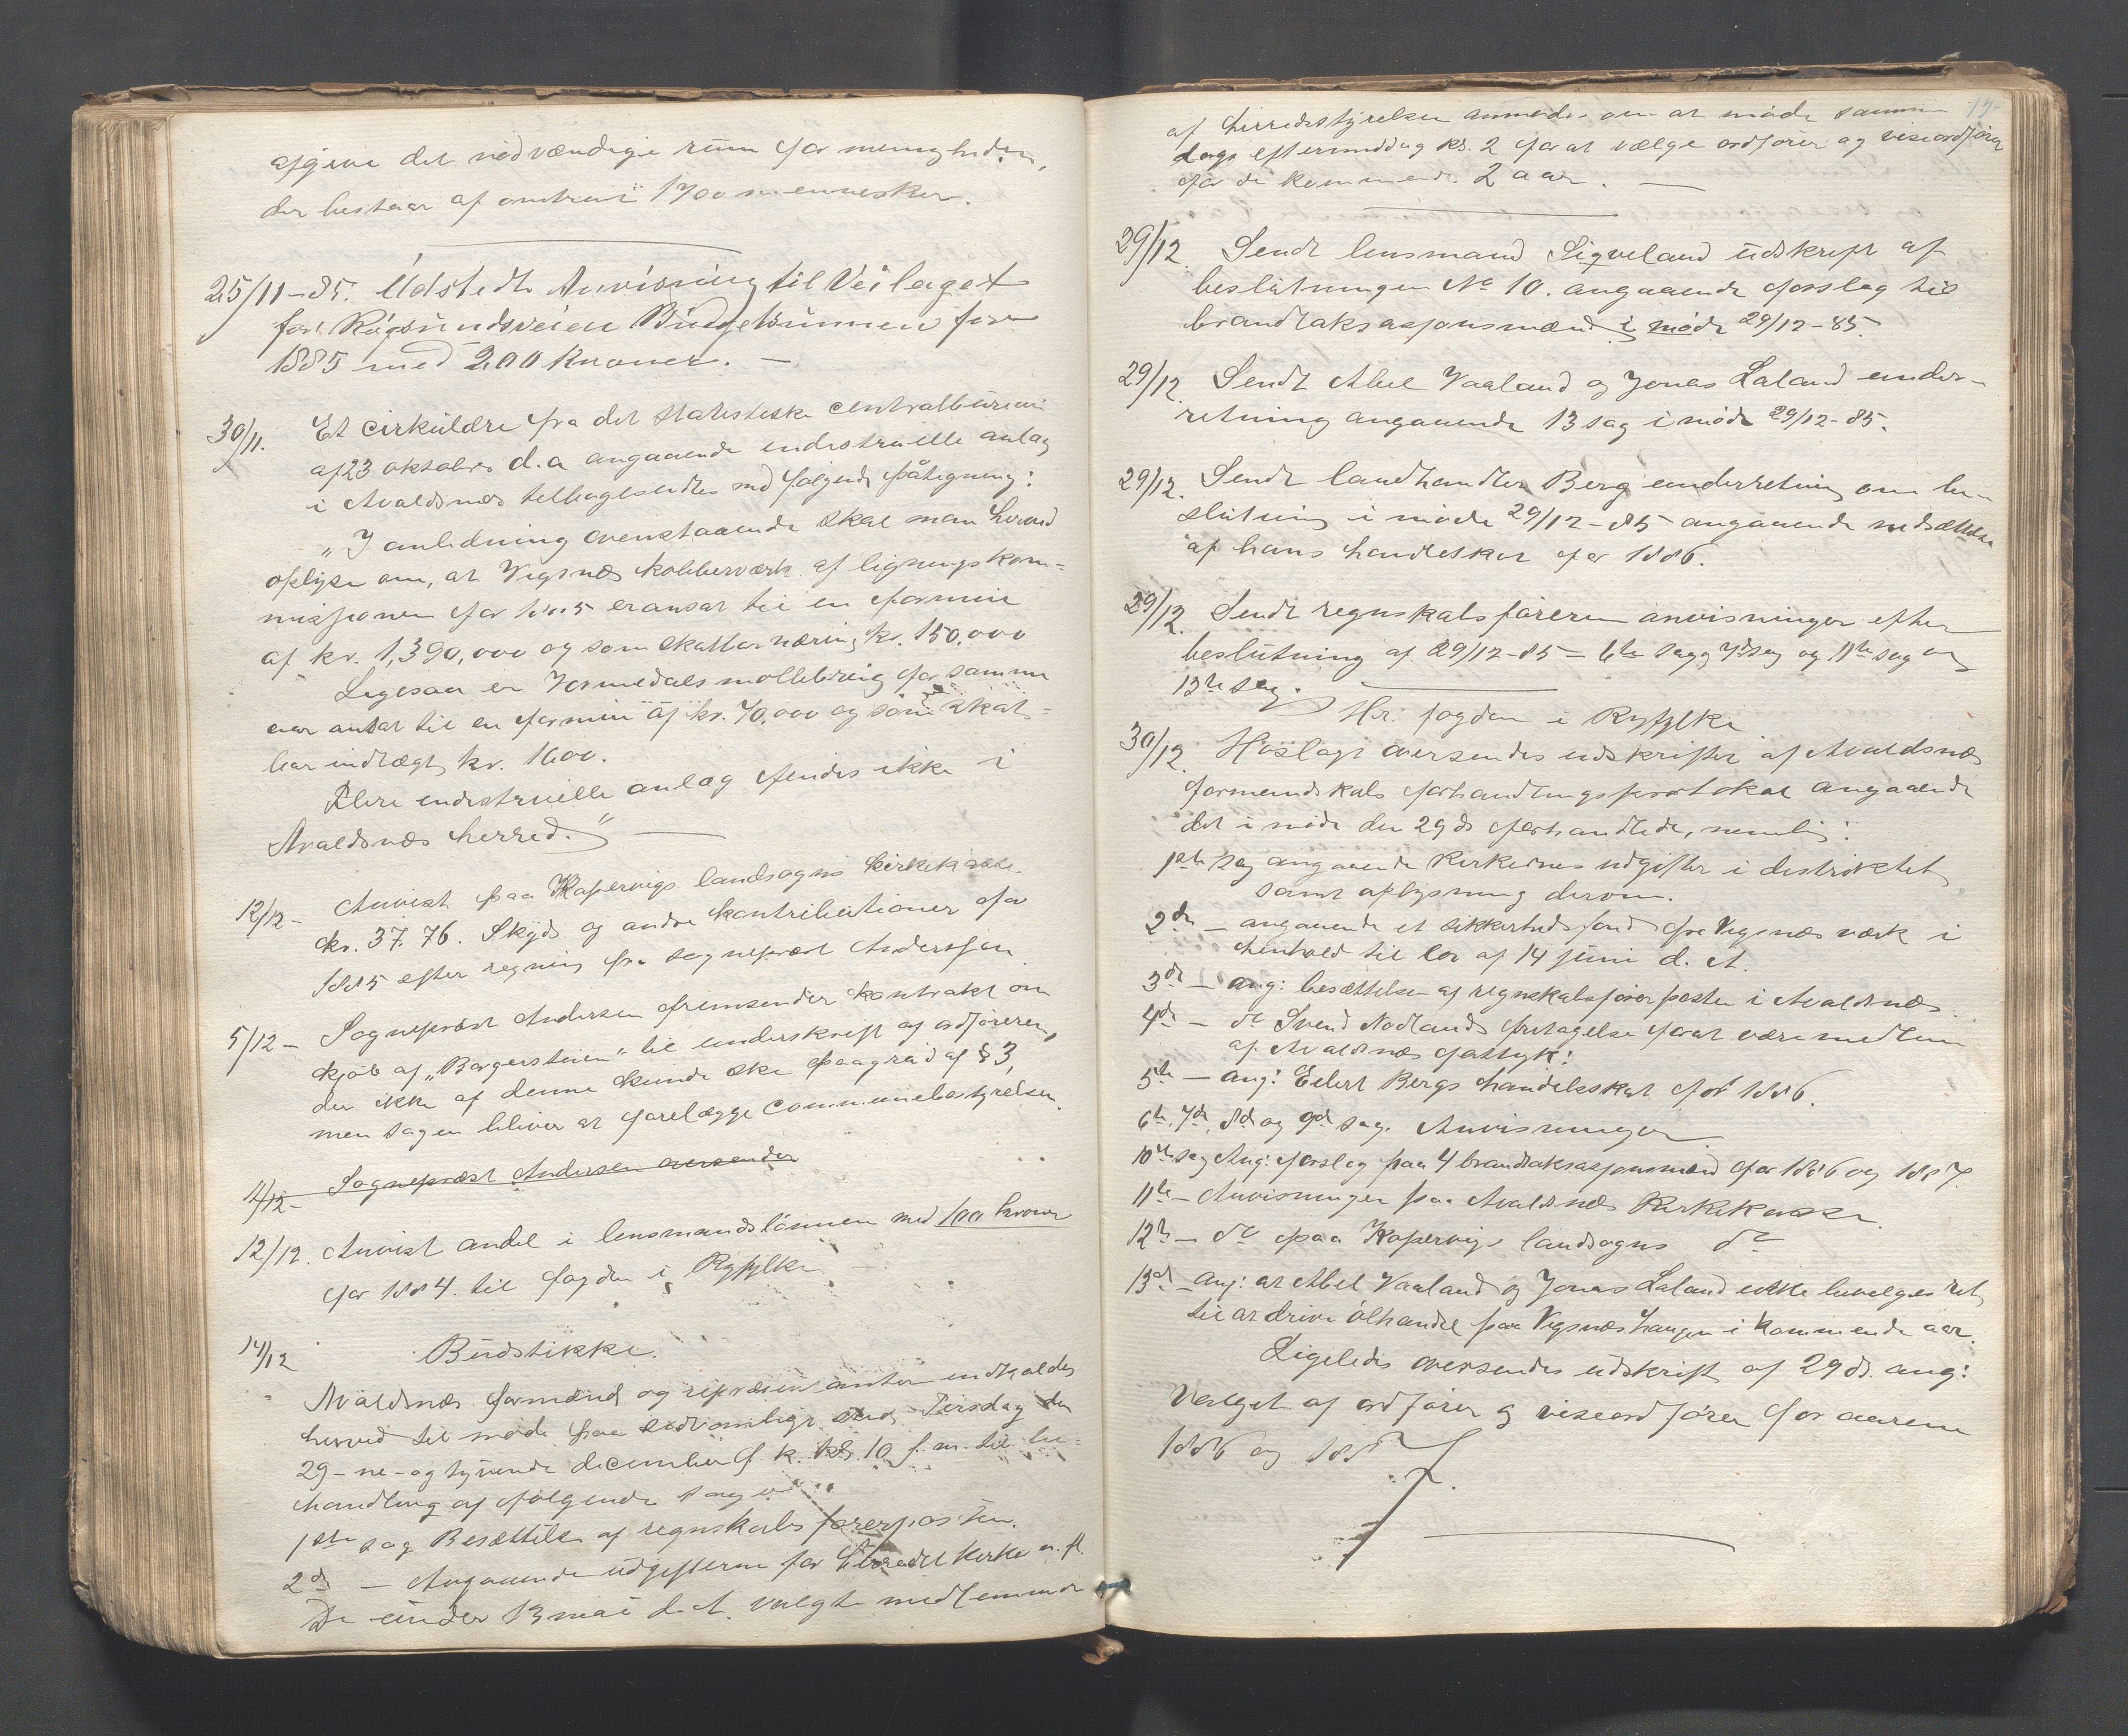 afgive det nødvændige rum for menigheden,
der bestaar af omtrent 1700 mennesker.
25/11-85. Udstedt Anvisning til Veilaget
for Røgsundsveien Budgetsummen for
1885 med 200 Kroner. —
30/11. Et cirkulære fra det statistiske centralbureau
af 23 oktober d.a angaaende endustrielle anlæg
i Avaldsnæs tilbagesendtes med følgende påtegning:
"I anledning ovenstaaende skal man herved
oplyse om, at Vigsnæs kobberværk af ligningskom=
missjonen for 1885 er ansat til en formue
af kr. 1,390,000 og som skatbar næring kr. 150,000
Ligesaa er Vormedals møllebrug for samme
aar antat til en formue af kr. 70,000 og som skat=
bar indtægt kr. 1600.
Flere endustrielle anlæg findes ikke i
Avaldsnæs herred." —
12/12- Anvist paa Kopervigs landsogns kirkekasse
kr. 37.76. Skyds og andre kontributioner for
1885 efter regning fra sogneprest Anderssen
5/12- Sogneprest Andersen fremsender kontrakt om
kjøb af "Borgersteien" til underskrift af ordføreren,
der ikke af denne kunde ske paagrund af § 3,
men sagen bliver at forelægge communebestyrelsen.
1/12- Sogneprest Andersen oversender
12/12. Anvist andel i lensmandslønnen med 100 kroner
for 1884. til fogden i Ryfylke —
14/12 Budstikke.
Avaldsnæs formænd og repræsentanter indkaldes
herved til møde paa sedvanlige sted Tirsdag den
29-ne-og tyvende december f. k. kl. 10 f.m. til be=
handling af følgende sager
1ste sag Besættelse af regnskabsførerposten.
2de — Angaaende udgifterne for herredets kirker m.fl.
De under 13 mai d.A. valgte medlemmer
af herredsstyrelsen anmodes om at møde samme
dags eftermiddag kl. 2 for at vælge ordfører og viseordfører
for de kommende 2 aar. —
29/12. Sendt lensmand Sigveland udskrift af
beslutningen No 10. angaaende forslag til
brandtaksasjonsmænd i møde 29/12-85.
29/12. Sendt Abel Vaaland og Jonas Laland under-
retning angaaende 13 sag i møde 29/12-85.
29/12. Sendt landhandler Berg underretning om be-
slutning i møde 29/12-85 angaaende nedsættelse
af hans handelskat for 1886.
29/12. Sendt regnskabsføreren anvisninger efter
beslutning af 29/12-85 = 6te sag 7de sag og 11te sag og
13de sag.
Hr. fogden i Ryfylke
30/12. Hoslagt oversendes udskrifter af Avaldsnæs
formandskabs forhandlingsprotokol angaaende
det i møde den 29 ds forhandlede, nemlig:
1ste sag angaaende kirkernes udgifter i destriktet
samt oplysning derom.
2de — angaaende et sikkerhedsfond fra Vigsnæs værk i
henhold til lov af 14 juni d. A.
3de — ang: besættelse af regnskabsførerposten i Avaldsnæs.
4de — do Svend Nodlands fritagelse for at være medlem
af Avaldsnæs fattigk:
5te — ang: Eilert Bergs handelsskat for 1886.
6te, 7de, 8de og 9de sag. Anvisninger.
10de sag Ang: forslag paa 4 brandtaksasjonsmænd for 1886 og 1887.
11te — Anvisninger paa Avaldsnæs Kirkekasse.
12te — do paa Kopervigs landsogns do
13de — ang: at Abel Vaaland og Jonas Laland ikke bevelges ret
til at drive ølhandel paa Vigsnæshaugen i kommende aar.
Ligeledes oversendes udskrift af 29 ds. ang:
Valget af ordfører og viseordfører for aarene
1886 og 1887.